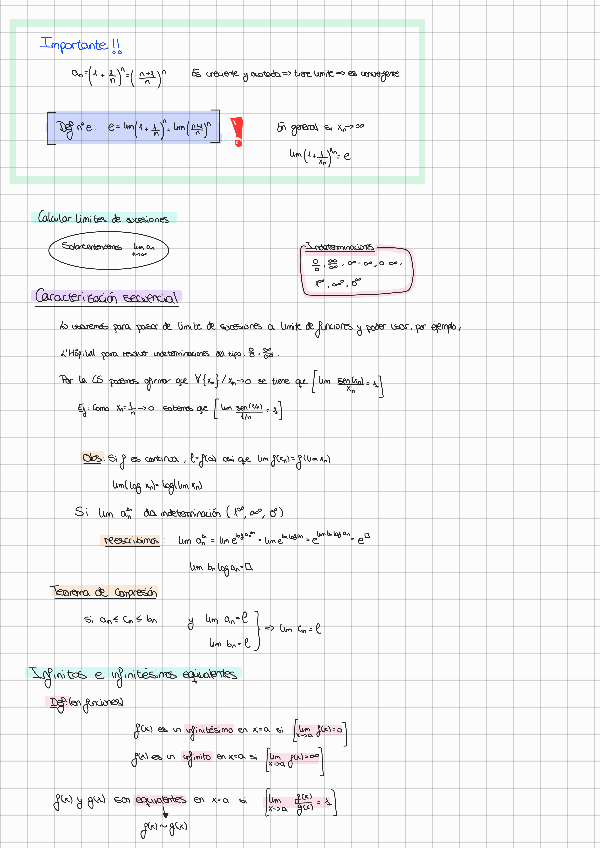 Importante!!
aₙ=(1+1/n)ⁿ=((n+1)/n)ⁿ Es creciente y acotada => tiene límite => es convergente
Def nº e: e=lim(1+1/n)ⁿ=lim((n+1)/n)ⁿ !
En general si xₙ→∞
lim(1+1/xₙ)^xₙ=e
Calcular límites de sucesiones
Sobreentendemos lim aₙ n→∞
Indeterminaciones
0/0, ∞/∞, ∞-∞, 0·∞,
1^∞, ∞^0, 0^0
Caracterización secuencial
Lo usaremos para pasar de límite de sucesiones a límite de funciones y poder usar, por ejemplo,
L'Hôpital para resolver indeterminaciones del tipo 0/0, ∞/∞.
Por la CS podemos afirmar que ∀{xₙ}/xₙ→0 se tiene que [lim sen(xₙ)/xₙ=1]
Ej: Como xₙ=1/n→0 sabemos que [lim sen(1/n)/(1/n)=1]
Obs: Si f es continua, l=f(a) así que lim f(xₙ)=f(lim xₙ)
lim(log xₙ)=log(lim xₙ)
Si lim aₙ^bₙ da indeterminación (1^∞, ∞^0, 0^0)
reescribimos: lim aₙ^bₙ = lim e^(log aₙ^bₙ) = lim e^(bₙ log aₙ) = e^(lim bₙ log aₙ) = e^□
lim bₙ log aₙ=□
Teorema de compresión
Si aₙ ≤ cₙ ≤ bₙ y lim aₙ=l
lim bₙ=l } => lim cₙ=l
Infinitos e infinitésimos equivalentes
Def: (en funciones)
f(x) es un infinitésimo en x=a si [lim x→a f(x)=0]
f(x) es un infinito en x=a si [lim x→a f(x)=∞]
f(x) y g(x) son equivalentes en x=a si [lim x→a f(x)/g(x)=1]
f(x)~g(x)